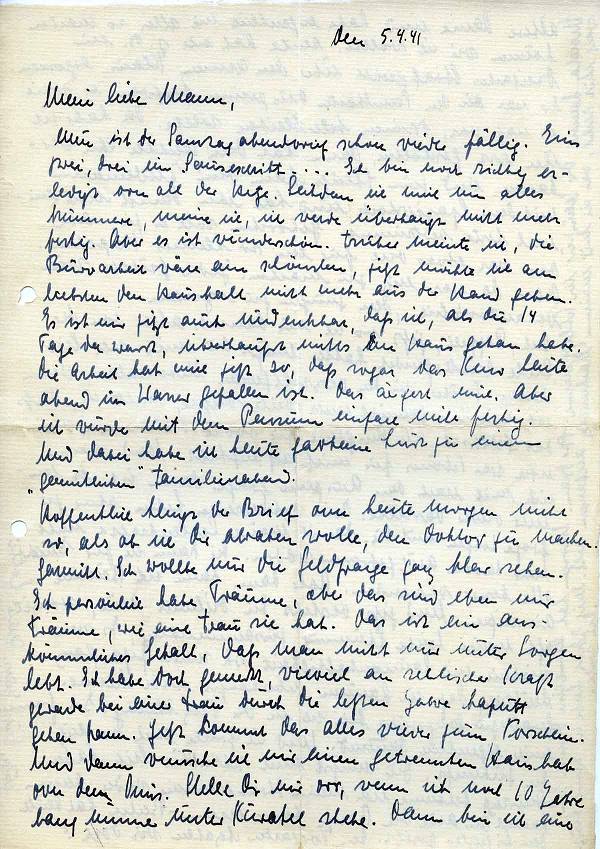 Den 5.4.41
Mein liebe Mann,
Nun ist der Samstagabend schon wieder fällig. Eins
zwei, drei im Sauseschritt.... Ich bin noch richtig er-
ledigt von all der Hetze. Seitdem ich mich um alles
kümmere, meine ich, ich werde überhaupt nicht mehr
fertig. Aber es ist wunderschön. Früher meinte ich, die
Büroarbeit wäre am schönsten, jetzt möchte ich am
liebsten den Haushalt nicht mehr aus der Hand geben.
Es ist mir jetzt auch undenkbar, daß ich, als du 14
Tage da warst, überhaupt nichts im Haus getan habe.
Die Arbeit hat mich jetzt so, daß sogar das Kino heute
abend im Wasser gefallen ist. Das ärgert mich. Aber
ich wurde mit dem Pensum einfach nicht fertig.
Und dabei habe ich heute gar keine Lust zu einem
"gemütlichen" Familienabend.
Hoffentlich klingt der Brief von heute morgen nicht
so, als ob ich Dir abraten wolle, den Doktor zu machen.
Ich wollte nur die Geldfrage ganz klar sehen.
Ich persönlich habe Träume, aber das sind eben nur
Träume, wie eine Frau sie hat. Das ist ein aus-
kömmliches Gehalt, daß man nicht nur unter Sorgen
lebt. Ich habe doch gemerkt, wieviel an seelischer Kraft
gerade bei einer Frau durch die letzten Jahre kaputt
gehen kann. Jetzt kommt das alles wieder zum Vorschein.
Und dann wünsche ich mir einen getrennten Haushalt
von dem Omis. Stelle Dir nur vor, wenn ich noch 10 Jahre
lang immer unter Kuratel stehe. Dann bin ich eine